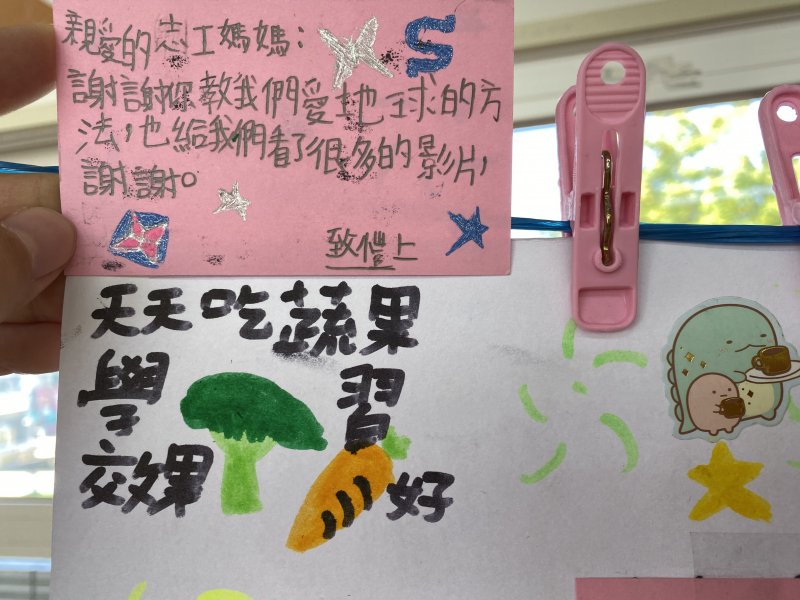 親愛的志工媽媽：
謝謝你教我們愛地球的方
法，也給我們看了很多的影片，
謝謝。
致愷上
天天吃蔬果
學習
效果好